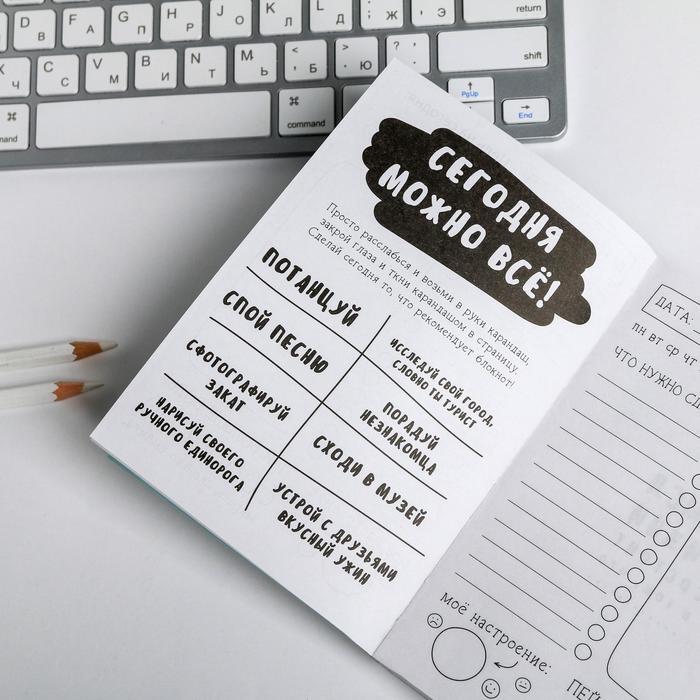 D F G H J K L : "
В А П Р О Л Д Ж Э return
X C V B N M < > ? shift
Ч С М И Т Ь Б Ю
command command PgUp End
СЕГОДНЯ
МОЖНО ВСЁ!
Просто расслабься и возьми в руки карандаш,
закрой глаза и ткни карандашом в страницу.
Сделай сегодня то, что рекомендует блокнот!
ПОТАНЦУЙ
СПОЙ ПЕСНЮ
СФОТОГРАФИРУЙ
ЗАКАТ
НАРИСУЙ СВОЕГО
РУЧНОГО ЕДИНОРОГА
ИССЛЕДУЙ СВОЙ ГОРОД,
СЛОВНО ТЫ ТУРИСТ
ПОРАДУЙ
НЕЗНАКОМЦА
СХОДИ В МУЗЕЙ
УСТРОЙ С ДРУЗЬЯМИ
ВКУСНЫЙ УЖИН
ДАТА:
ПН ВТ СР ЧТ
ЧТО НУЖНО СД
МОЁ НАСТРОЕНИЕ: